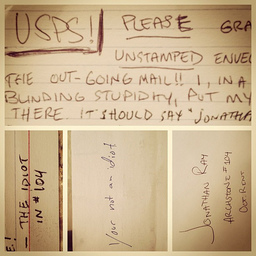 USPS! PLEASE GRA
UNSTAMPED ENVE
THE OUT-GOING MAIL!! I, IN A
BLINDING STUPIDITY, PUT MY
THERE. IT SHOULD SAY "JONATHA
E!
- THE IDIOT
IN #104
Your not an idiot
JONATHAN RAY
ARCHSTONE #104
OUR RENT